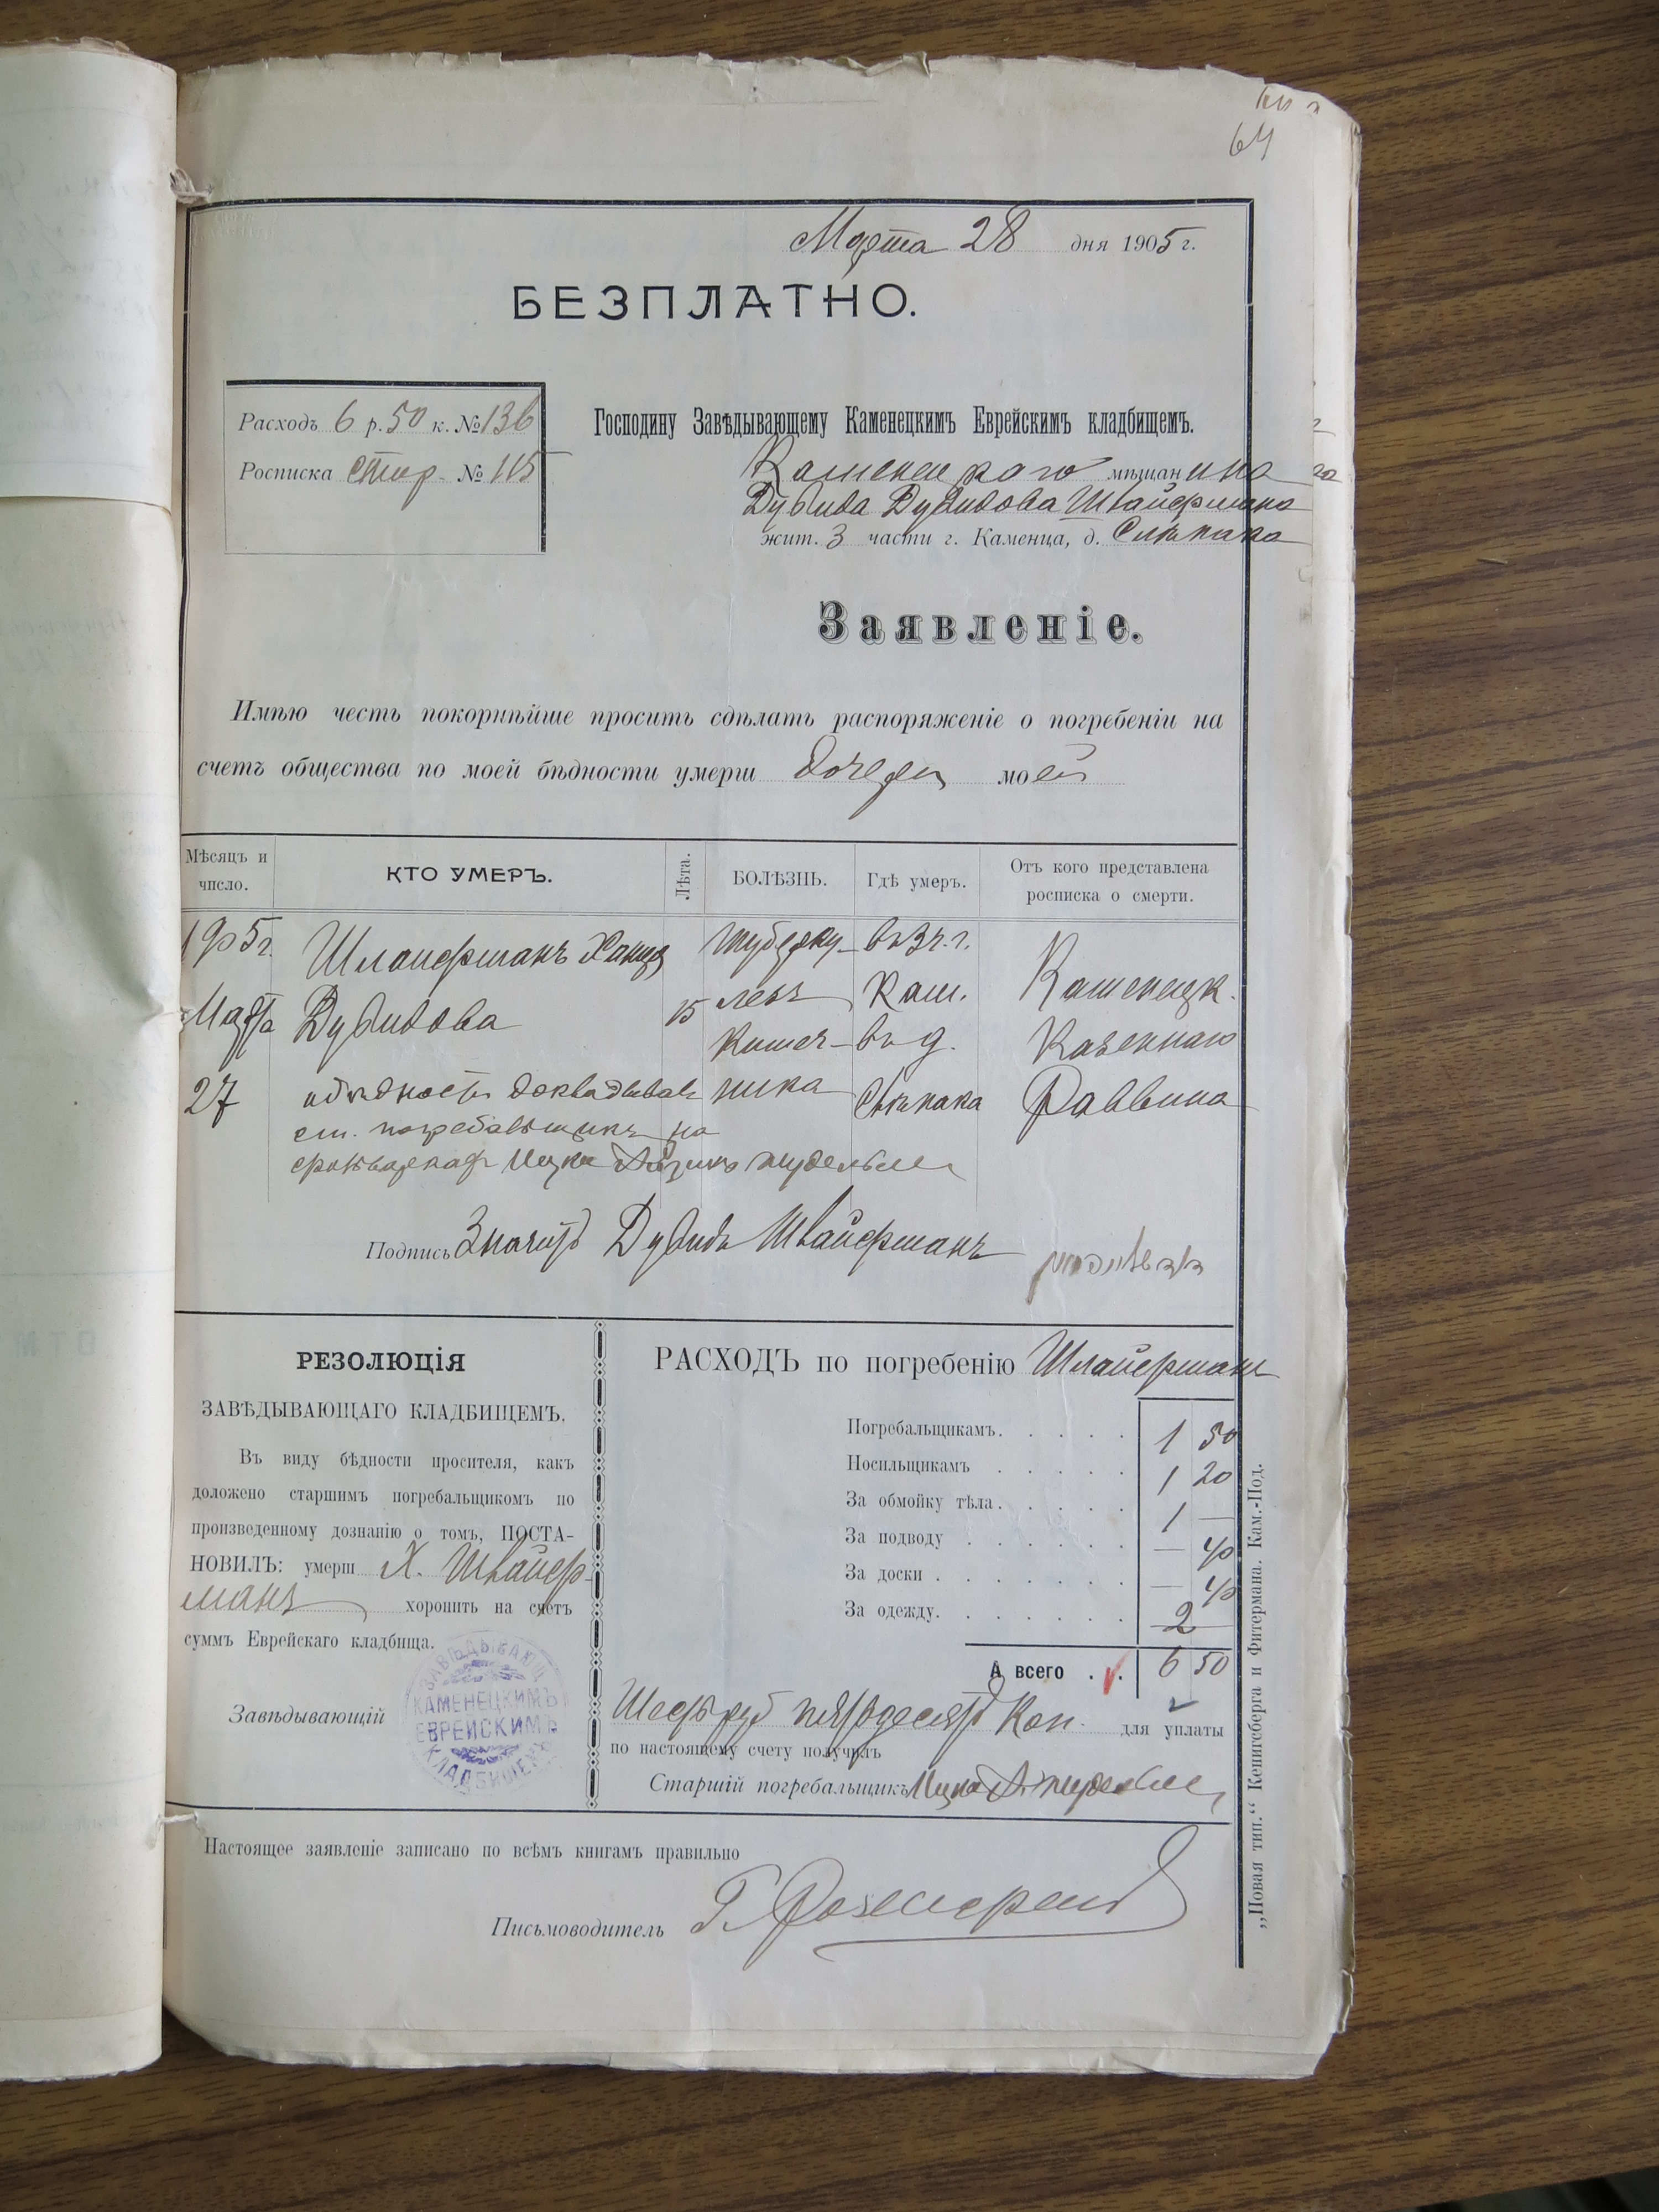 64
Марта 28 дня 1905 г.
БЕЗПЛАТНО.
Расходъ 6 р. 50 к. № 136
Росписка стор. № 115
Господину Завѣдывающему Каменецкимъ Еврейскимъ кладбищемъ.
Каменецкаго мѣщанина
Дувида Дувидова Швайфмана
жит. 3 части г. Каменца, д. Слѣпака
Заявленіе.
Имѣю честь покорнѣйше просить сдѣлать распоряженіе о погребеніи на
счетъ общества по моей бѣдности умерш дочери моей
Мѣсяцъ и число.
КТО УМЕРЪ.
Лѣта.
БОЛѢЗНЬ.
Гдѣ умеръ.
Отъ кого представлена росписка о смерти.
1905 г. туберку- въ 3 ч. г.
Марта Дувидова 15 лезъ Кам. Каменецк.
Кишеч- въ д. Казеннаго
27 ника Слѣпака Раввина
ст. погребальщикъ
Подпись Дувидъ Швайфманъ
РЕЗОЛЮЦІЯ
ЗАВѢДЫВАЮЩАГО КЛАДБИЩЕМЪ.
Въ виду бѣдности просителя, какъ
доложено старшимъ погребальщикомъ по
произведенному дознанію о томъ, ПОСТА-
НОВИЛЪ: умерш Х. Швайф-
манъ хоронить на счетъ
суммъ Еврейскаго кладбища.
Завѣдывающій
ЗАВѢДЫВАЮЩ
КАМЕНЕЦКИМЪ
ЕВРЕЙСКИМЪ
КЛАДБИЩЕМЪ
РАСХОДЪ по погребенію
Погребальщикамъ. 1 50
Носильщикамъ 1 20
За обмойку тѣла. 1 —
За подводу — 40
За доски — 40
За одежду. 2 —
А всего 6 50
Шесть руб пятьдесятъ Коп. для уплаты
по настоящему счету получилъ
Старшій погребальщикъ
Настоящее заявленіе записано по всѣмъ книгамъ правильно
Письмоводитель
„Новая тип.“ Кенигсберга и Фитермана. Кам.-Под.